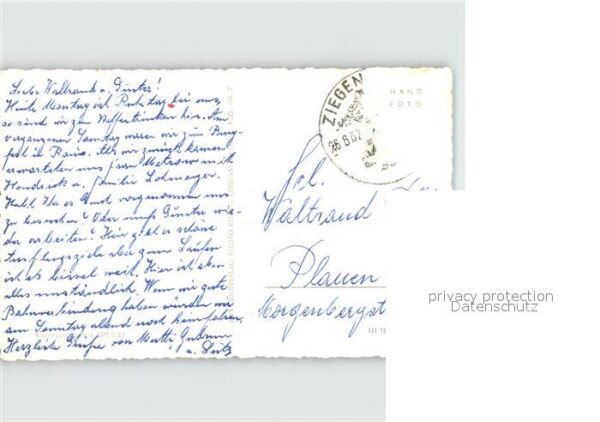 Liebe Waltraud u. Günter!
Heute Montag ist Ruhetag bei uns,
so sind wir zum Kaffeetrinken hier. Am
vergangenen Sonntag waren wir zum Burg-
fest in Ranis. Als wir zurück kamen
erwarteten uns Frau
u. Familie
Habt Ihr es Euch vorgenommen uns
zu besuchen? Oder muß Günter wie-
der arbeiten? Hier gibt es schöne
Ausflugsziele aber zum Laufen
ist es bissel weit. Hier ist eben
alles umständlich. Wenn wir gute
Bahnverbindung haben würden wir
am Sonntag abend noch heimfahren.
Herzliche Grüße von Mutti,
u.
ZIEGEN
26.8.62
HAND
FOTO
Waltraud
Plauen
III 18
privacy protection
Datenschutz